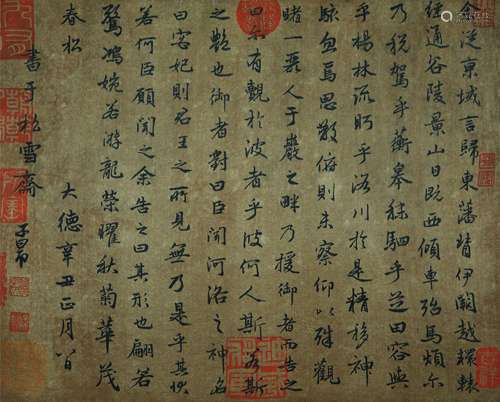 余從京域言歸東藩背伊闕越轘轅
經通谷陵景山日既西傾車殆馬煩爾
乃税駕乎蘅皋秣駟乎芝田容與
乎楊林流眄乎洛川於是精移神
駭忽焉思散俯則未察仰以殊觀
睹一麗人于巖之畔乃援御者而告之
曰爾有覿於彼者乎彼何人斯若斯
之艷也御者對曰臣聞河洛之神名
曰宓妃則君王之所見無乃是乎其狀
若何臣願聞之余告之曰其形也翩若
驚鴻婉若游龍榮曜秋菊華茂
春松 大德辛丑正月八日
書于松雪齋 子昂